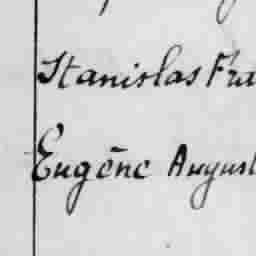 Stanislas Fra
Eugène August